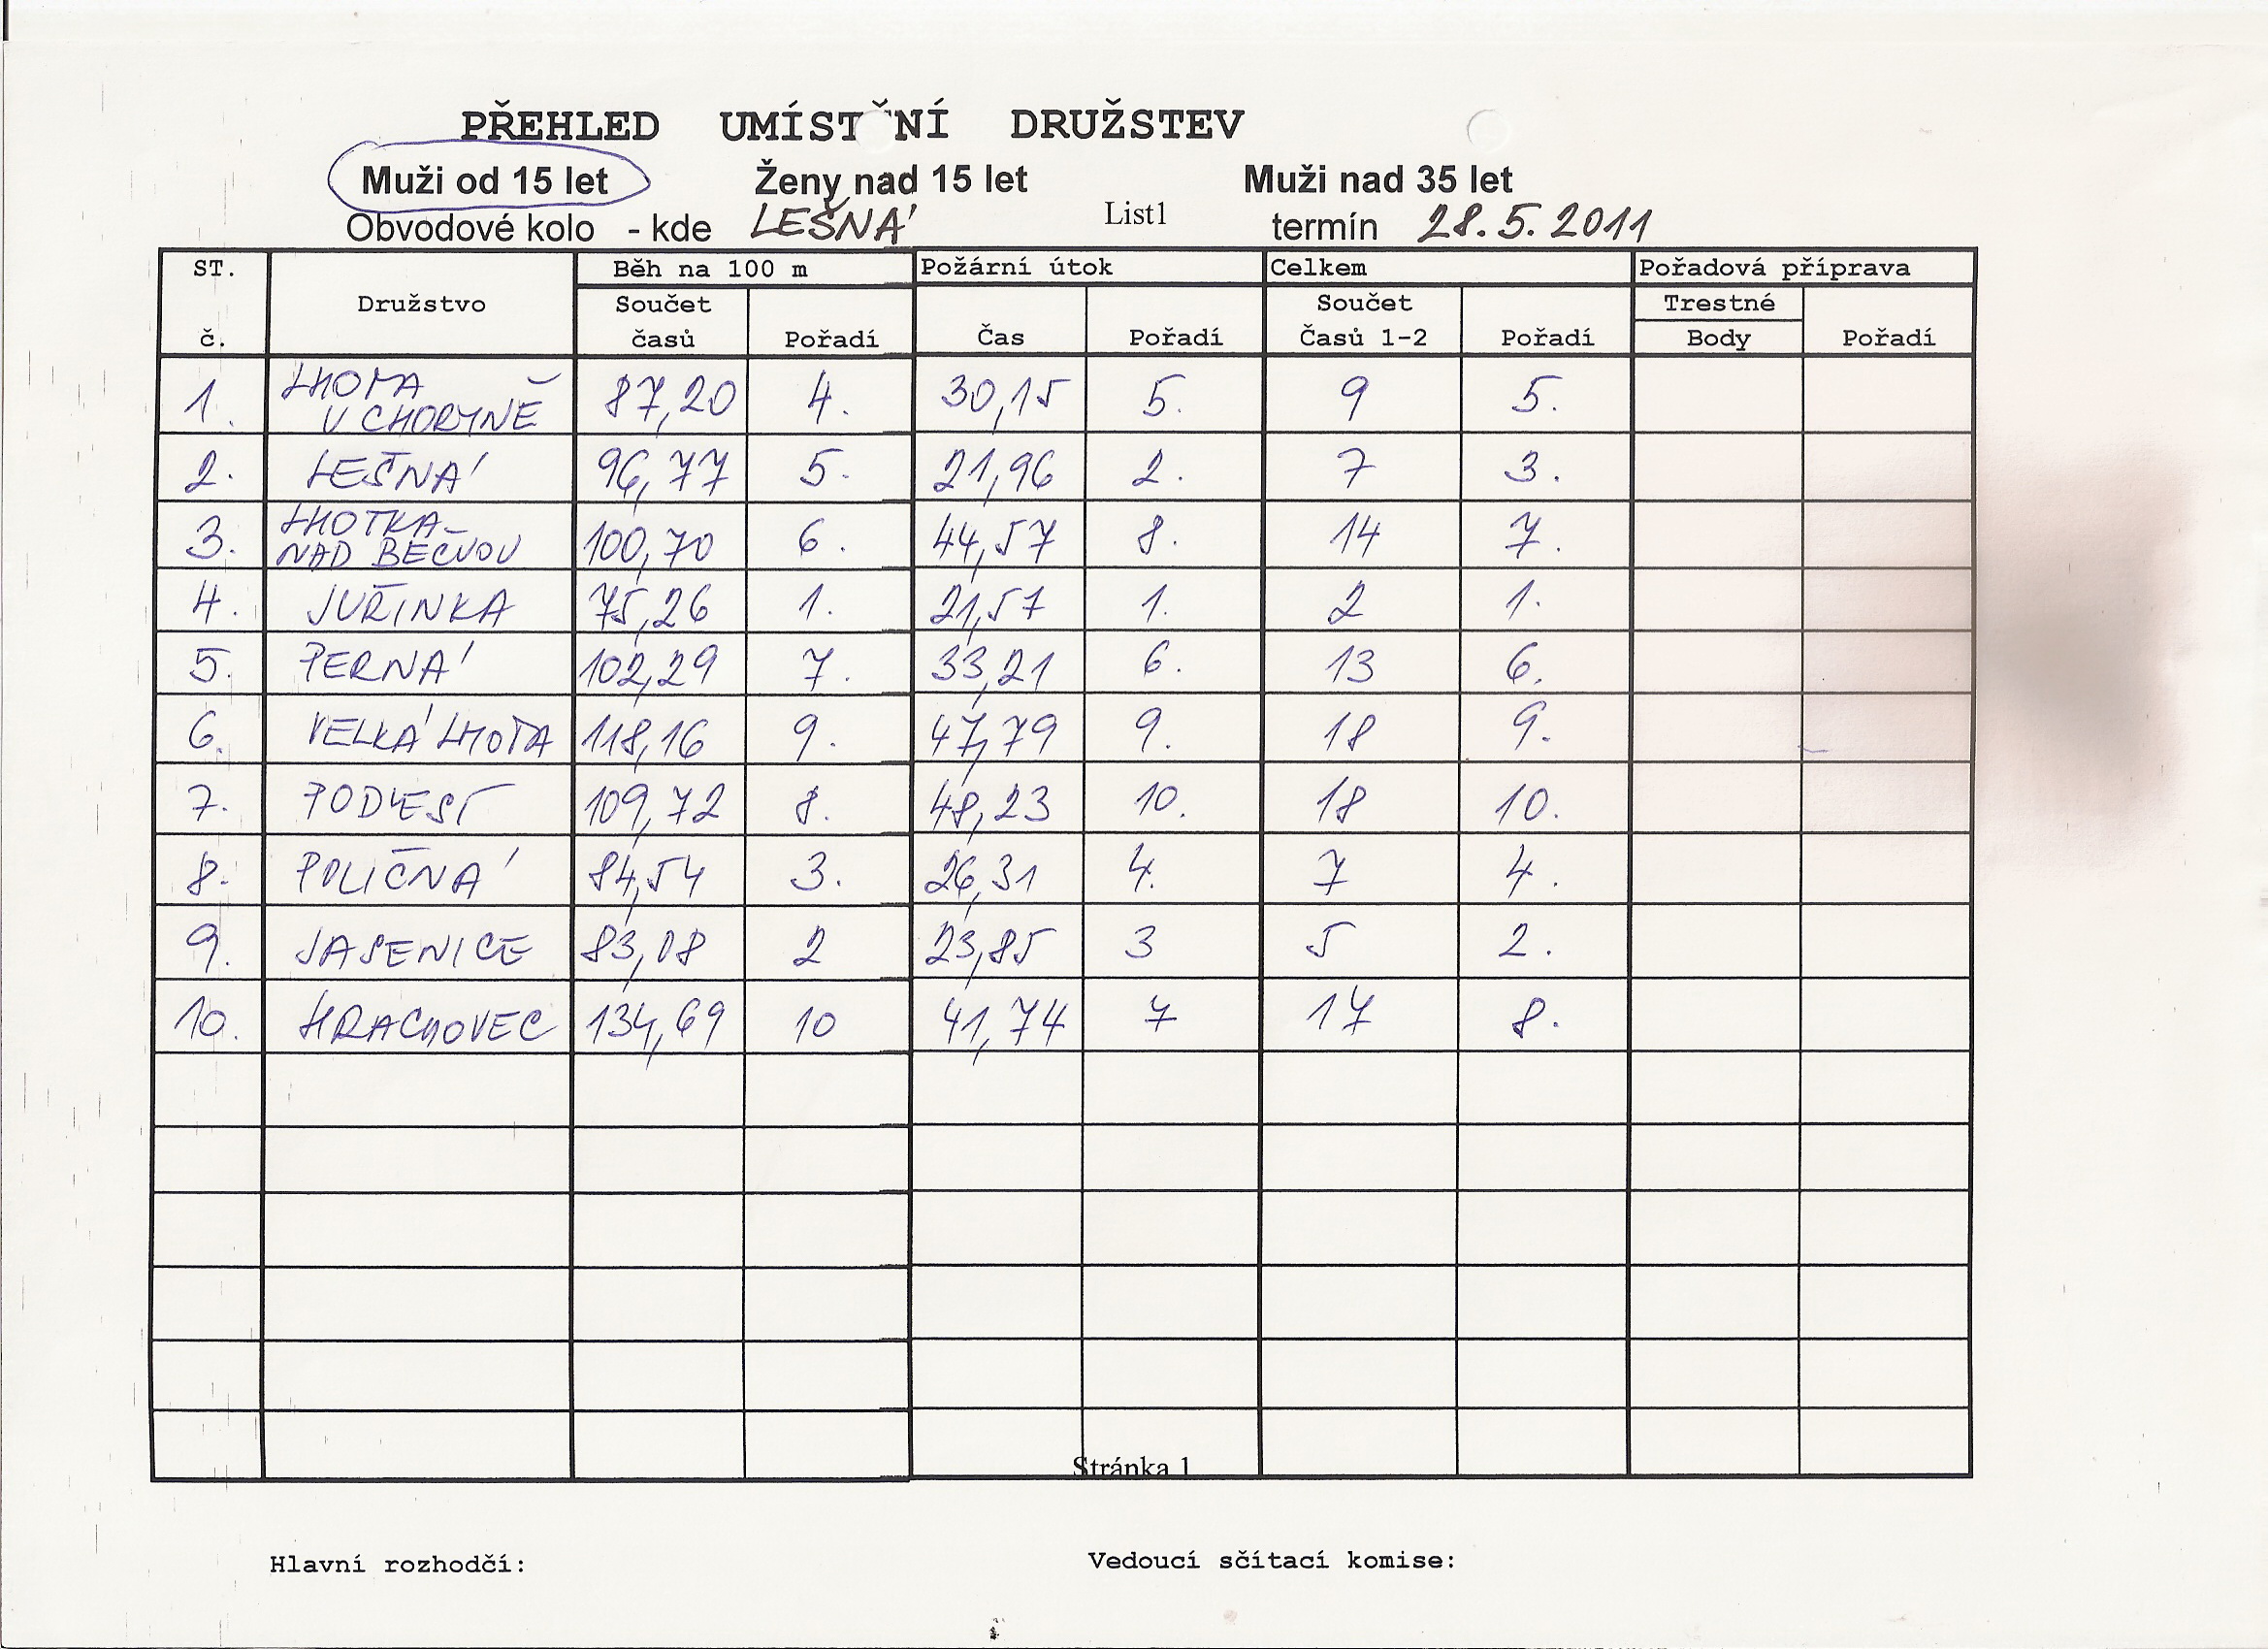 PŘEHLED UMÍSTĚNÍ DRUŽSTEV
Muži od 15 let Ženy nad 15 let Muži nad 35 let
Obvodové kolo - kde LEŠNÁ List1 termín 28.5.2011
ST. Běh na 100 m Požární útok Celkem Pořadová příprava
Družstvo Součet Součet Trestné
č. časů Pořadí Čas Pořadí Časů 1-2 Pořadí Body Pořadí
1. LHOTA U CHORYNĚ 87,20 4. 30,15 5. 9 5.
2. LEŠNÁ 96,77 5. 21,96 2. 7 3.
3. LHOTKA NAD BEČVOU 100,70 6. 44,57 8. 14 7.
4. JUŘINKA 75,26 1. 21,57 1. 2 1.
5. PERNÁ 102,29 7. 33,21 6. 13 6.
6. VELKÁ LHOTA 118,16 9. 47,79 9. 18 9.
7. PODLESÍ 109,72 8. 48,23 10. 18 10.
8. POLIČNÁ 84,54 3. 26,31 4. 7 4.
9. JASENICE 83,08 2 23,85 3 5 2.
10. HRACHOVEC 134,69 10 41,74 7 17 8.
Stránka 1
Hlavní rozhodčí: Vedoucí sčítací komise: